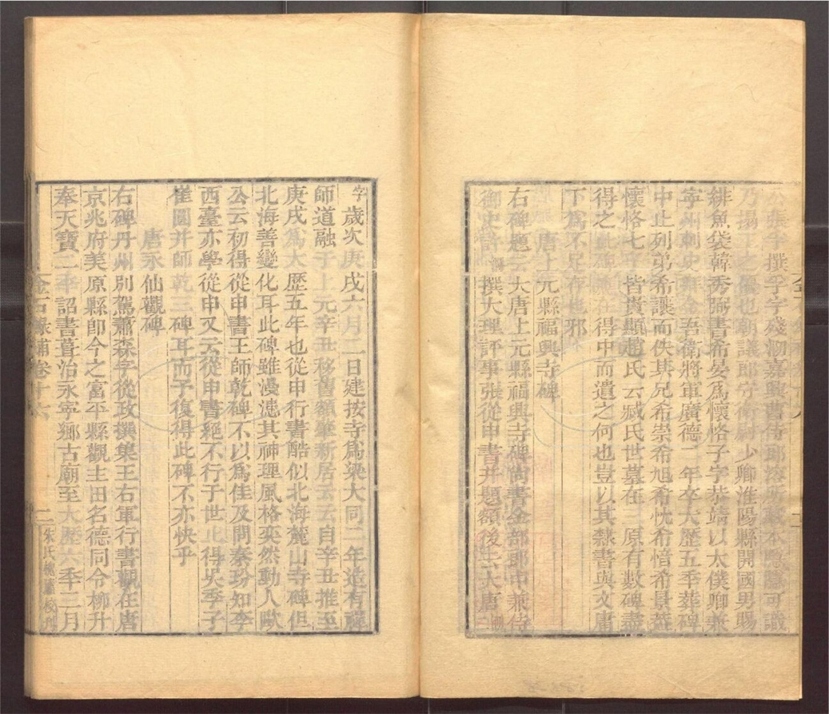 公集字撰字字殘泐嘉興書
乃揚之偶也朝議郎守衛尉少卿淮陽縣開國男賜
緋魚袋韓秀弼書希晏爲懷恪子字恭靖以太僕卿兼
寧州刺史兼金吾衛將軍廣德二年卒大歷五季葬碑
中止列弟希讓而佚其兄希崇希旭希忱希愔希景蓋
懷恪七子皆貴顯趙氏云臧氏世墓在三原有數碑盡
得之此碑在得中而遺之何也豈以其隸書與文庸
下爲不足存也邪
唐上元縣福興寺碑
右碑題云大唐上元縣福興寺碑尚書金部郎中兼侍
御史許撰大理評事張從申書并題額後云大唐
字歲次庚戌六月二日建按寺爲梁大同二年造有禪
師道融于上元辛丑移舊額肇新居云云自辛丑推至
庚戌爲大歷五年也從申行書酷似北海麓山寺碑但
北海善變化耳此碑雖漫漶其神理風格奕然動人歐
公云初得從申書王師乾碑不以爲佳及問秦玠知李
西臺亦學從申又云從申書絕不行于世止得吳季子
崔圓并師乾三碑耳而予復得此碑不亦快乎
唐永仙觀碑
右碑丹州別駕蕭森字從政撰集王右軍行書觀在唐
京兆府美原縣卽今之富平縣觀主田名德同令柳升
奉天寶二季詔書葺治永寧鄉古廟至大歷六季三月
金石錄補卷十六
二
朱氏槐廬校刊